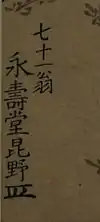 七十一翁
永壽堂昆野